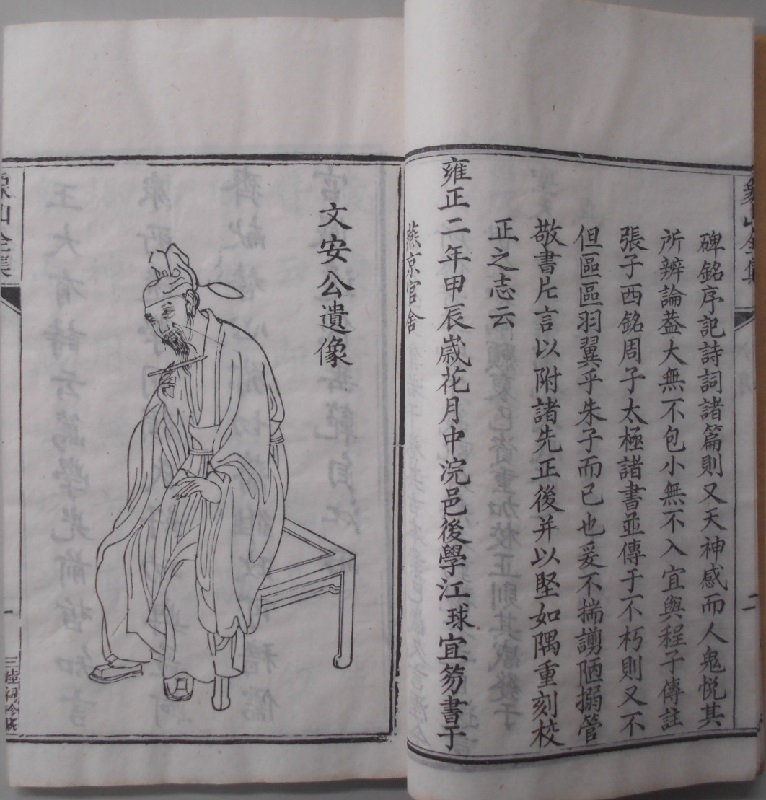 碑銘序記詩詞諸篇則又天神感而人鬼悅其
所辨論葢大無不包小無不入宜與程子傳註
張子西銘周子太極諸書並傳于不朽則又不
但區區羽翼乎朱子而已也爰不揣謭陋搦管
敬書片言以附諸先正後并以堅如隅重刻校
正之志云
雍正二年甲辰歲花月中浣邑後學江球宜笏書于
燕京官舍
文安公遺像
象山全集